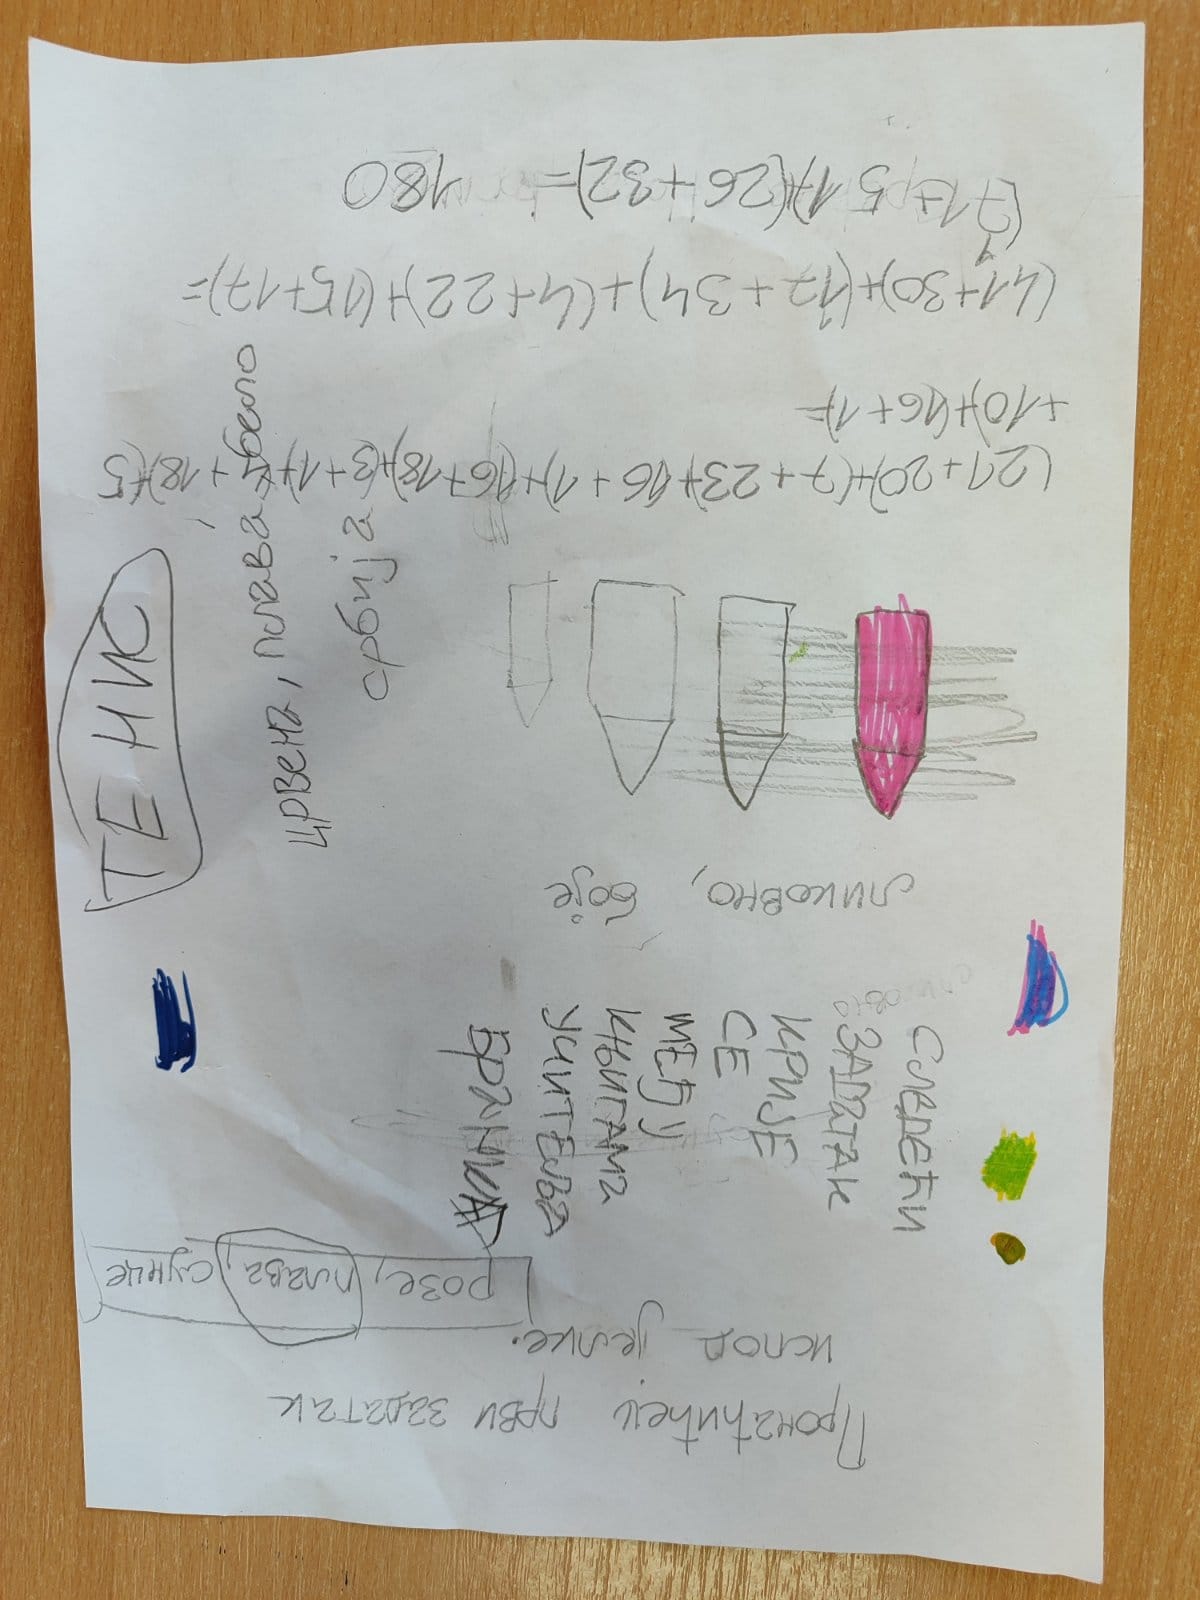 Пронаћићеш први задатак
испод јелке.
розе, плава, сунце
СЛЕДЕЋИ
ЗАДАТАК
КРИЈЕ
СЕ
МЕЂУ
КЊИГАМА
УЧИТЕЉА
БРАНКА
ликовно, боје
ТЕНИС
црвена, плава, бело
србија
(21+20)+(7+23)+(16+1)+(16+18)+(3+1)+(4+18)+(5
+10)+(16+1)=
(41+30)+(17+34)+(4+22)+(15+17)=
(71+51)+(26+32)= 180